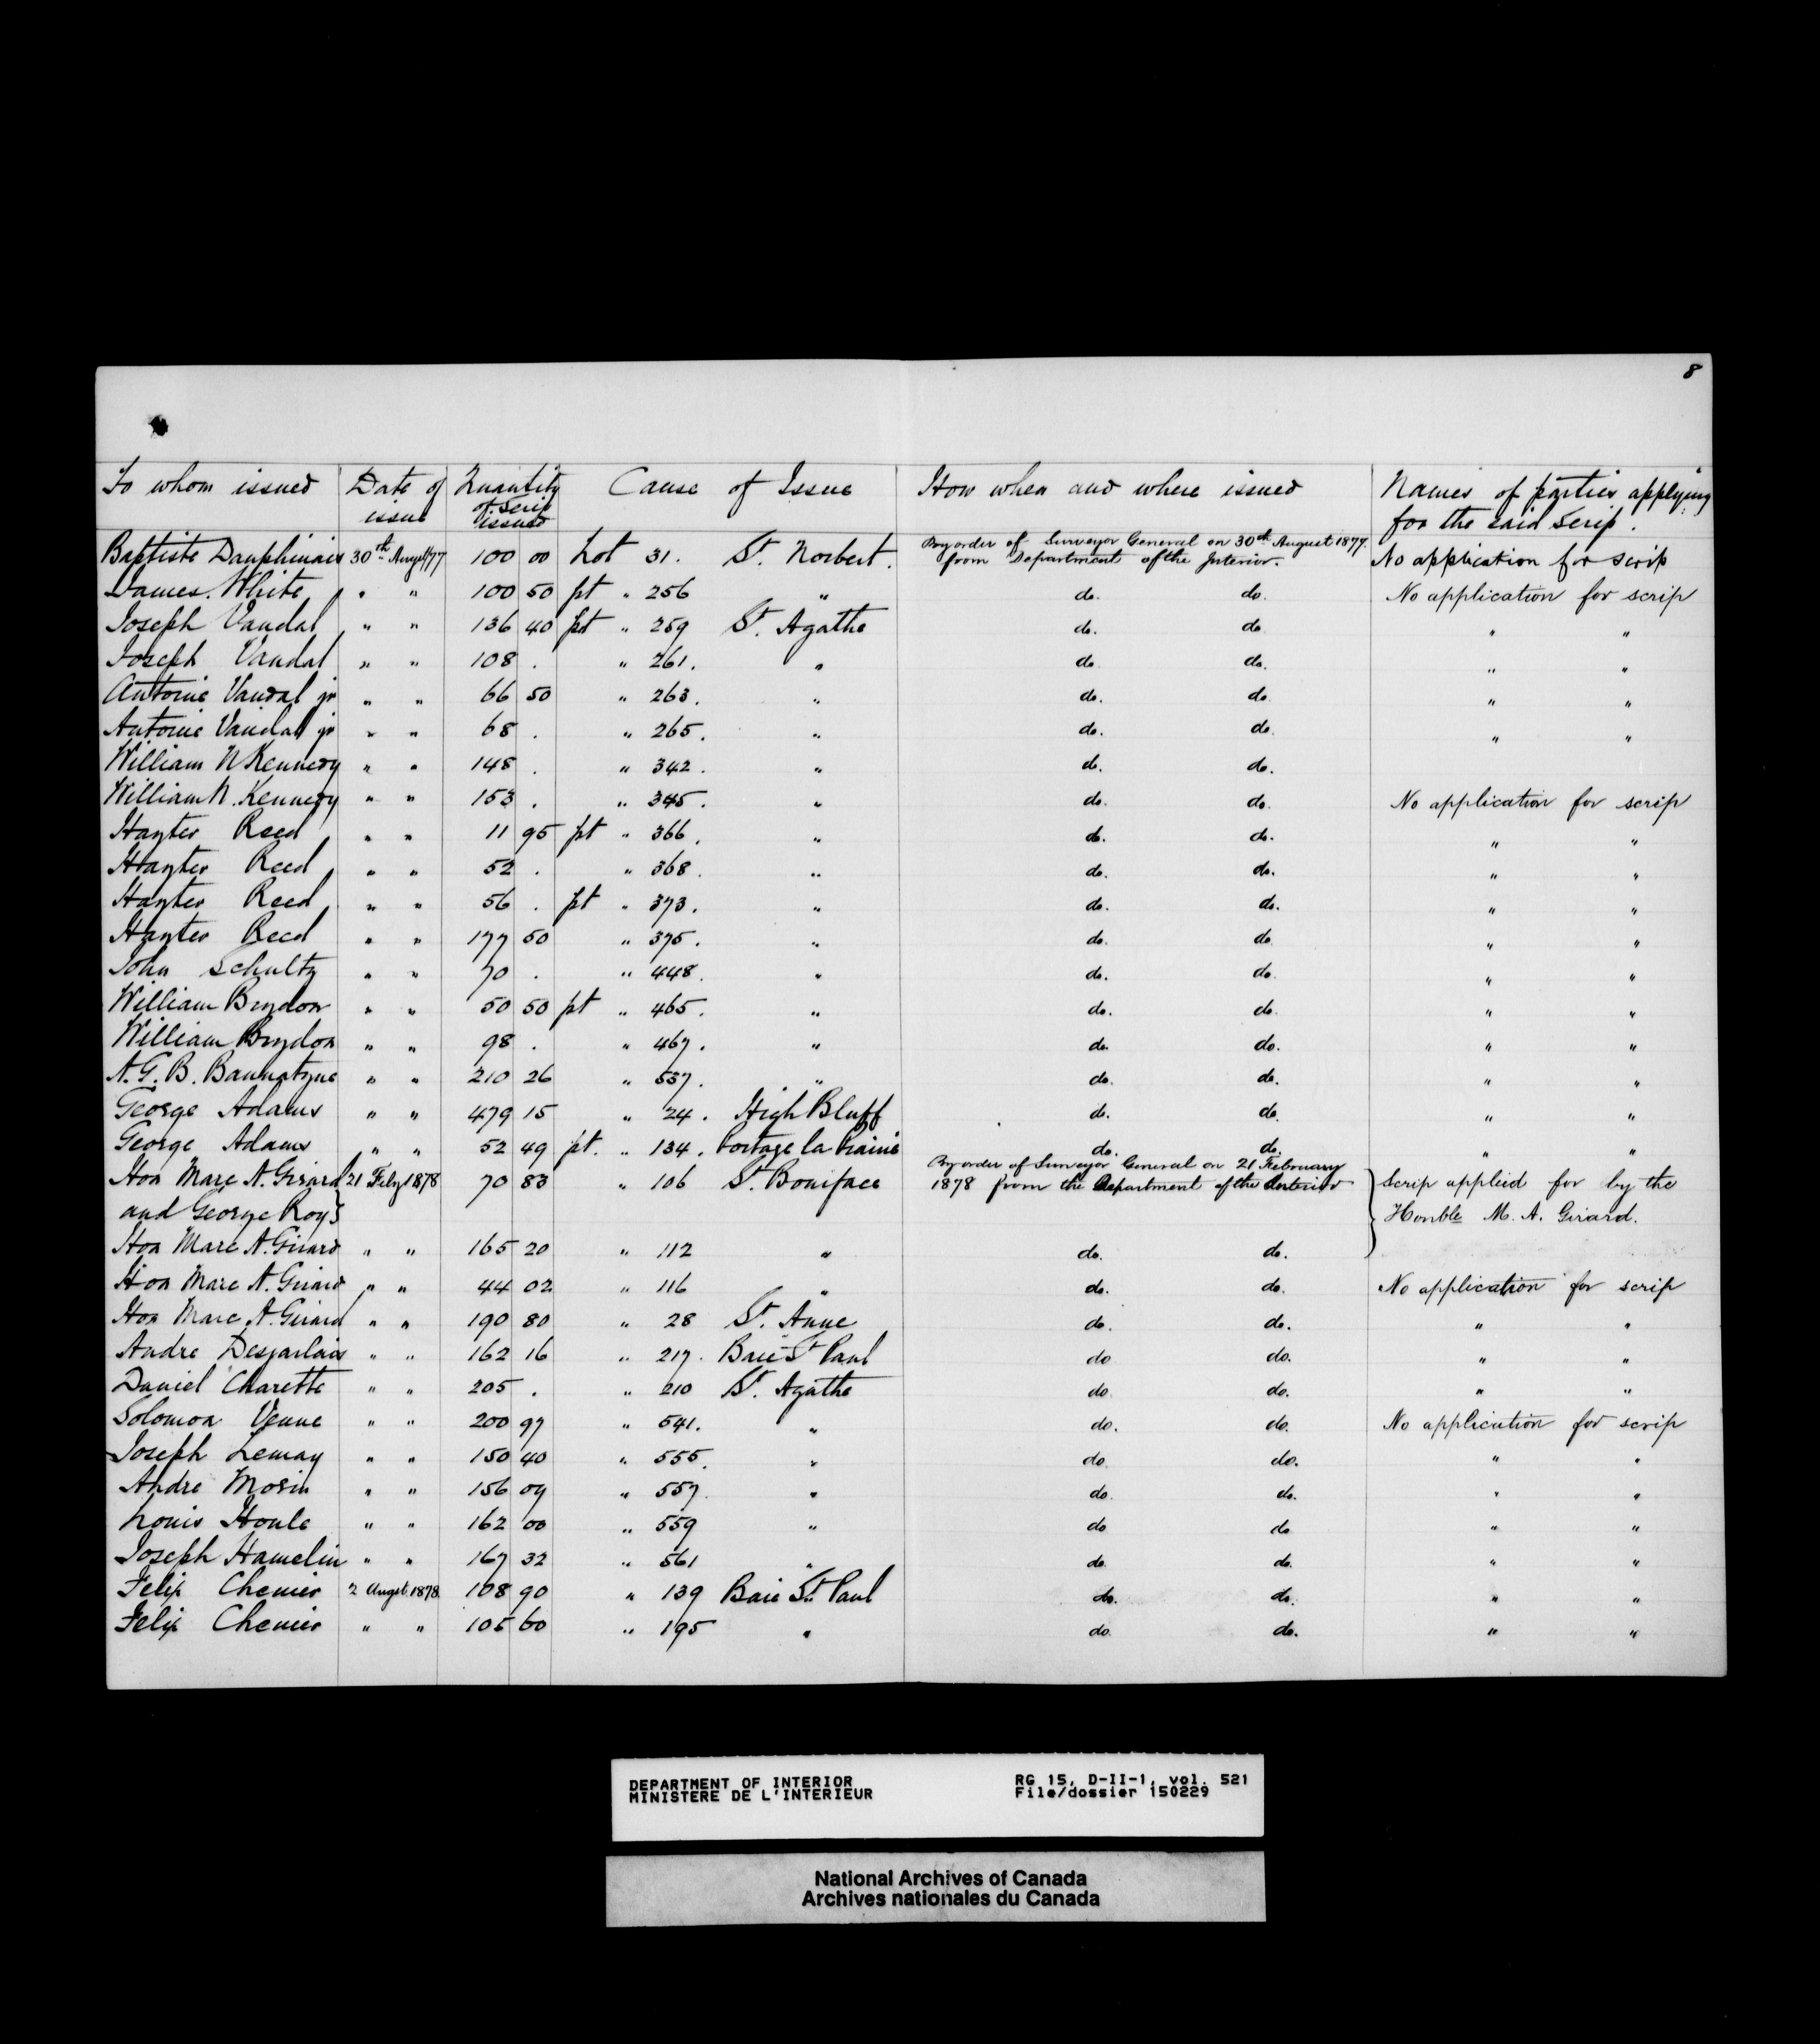 8
To whom issued Date of issue Quantity of Scrip issued Cause of Issue How when and where issued Names of parties applying for the said Scrip.
Baptiste Dauphinais 30th Augt/77 100 00 Lot 31. St. Norbert. By order of Surveyor General on 30th August 1877. from Department of the Interior. No application for scrip
James White " " 100 50 pt " 256 " do. do. No application for scrip
Joseph Vandal " " 136 40 pt " 259 St. Agathe do. do " "
Joseph Vandal " " 108 . " 261. " do. do. " "
Antoine Vandal jr " " 66 50 " 263. " do. do " "
Antoine Vandal jr " " 68 . " 265. " do. do. " "
William N Kennedy " " 148 . " 342. " do. do.
William N. Kennedy " " 153 . " 345. " do. do. No application for scrip
Hayter Reed " " 11 95 pt " 366. " do. do. " "
Hayter Reed " " 52 . " 368. " do. do. " "
Hayter Reed " " 56 . pt " 373. " do. do. " "
Hayter Reed " " 177 50 " 375. " do. do " "
John Schultz " " 70 . " 448. " do. do. " "
William Brydon " " 50 50 pt " 465. " do. do. " "
William Brydon " " 98 . " 467. " do. do. " "
A. G. B. Bannatyne " " 210 26 " 537. " do. do. " "
George Adams " " 479 15 " 24. High Bluff do. do. " "
George Adams " " 52 49 pt. " 134. Portage la Prairie do. do. " "
Hon Marc A. Girard 21 Feby 1878 70 83 " 106 St. Boniface By order of Surveyor General on 21 February 1878 from the Department of the Interior Scrip applied for by the
and George Roy} Honble M. A. Girard.
Hon Marc A. Girard " " 165 20 " 112 " do. do.
Hon Marc A. Girard " " 44 02 " 116 " do. do. No application for scrip
Hon Marc A. Girard " " 190 80 " 28 St. Anne do. do. " "
Andre Desjarlais " " 162 16 " 217. Baie St Paul do do. " "
Daniel Charette " " 205 . " 210 St. Agathe do. do. " "
Solomon Venne " " 200 97 " 541. " do. do. No application for scrip
Joseph Lemay " " 150 40 " 555. " do. do. " "
Andre Morin " " 156 09 " 557. " do. do. " "
Louis Houle " " 162 00 " 559 " do do " "
Joseph Hamelin " " 167 32 " 561 " do. do. " "
Felix Chenier 2 Augst. 1878 108 90 " 139 Baie St. Paul do. do. " "
Felix Chenier " " 105 60 " 195 " do. do. " "
DEPARTMENT OF INTERIOR RG 15, D-II-1, vol. 521
MINISTERE DE L'INTERIEUR File/dossier 150229
National Archives of Canada
Archives nationales du Canada